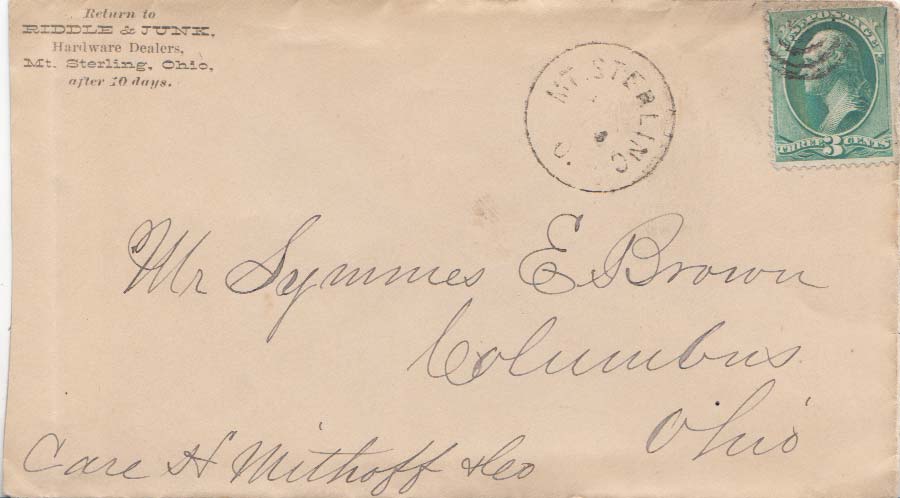 Return to
RIDDLE & JUNK,
Hardware Dealers,
Mt. Sterling, Ohio,
after 10 days.
MT. STERLING
O.
U.S. POSTAGE
THREE 3 CENTS
Mr Symmes E Brown
Columbus
Ohio
Care H Mithoff & Co